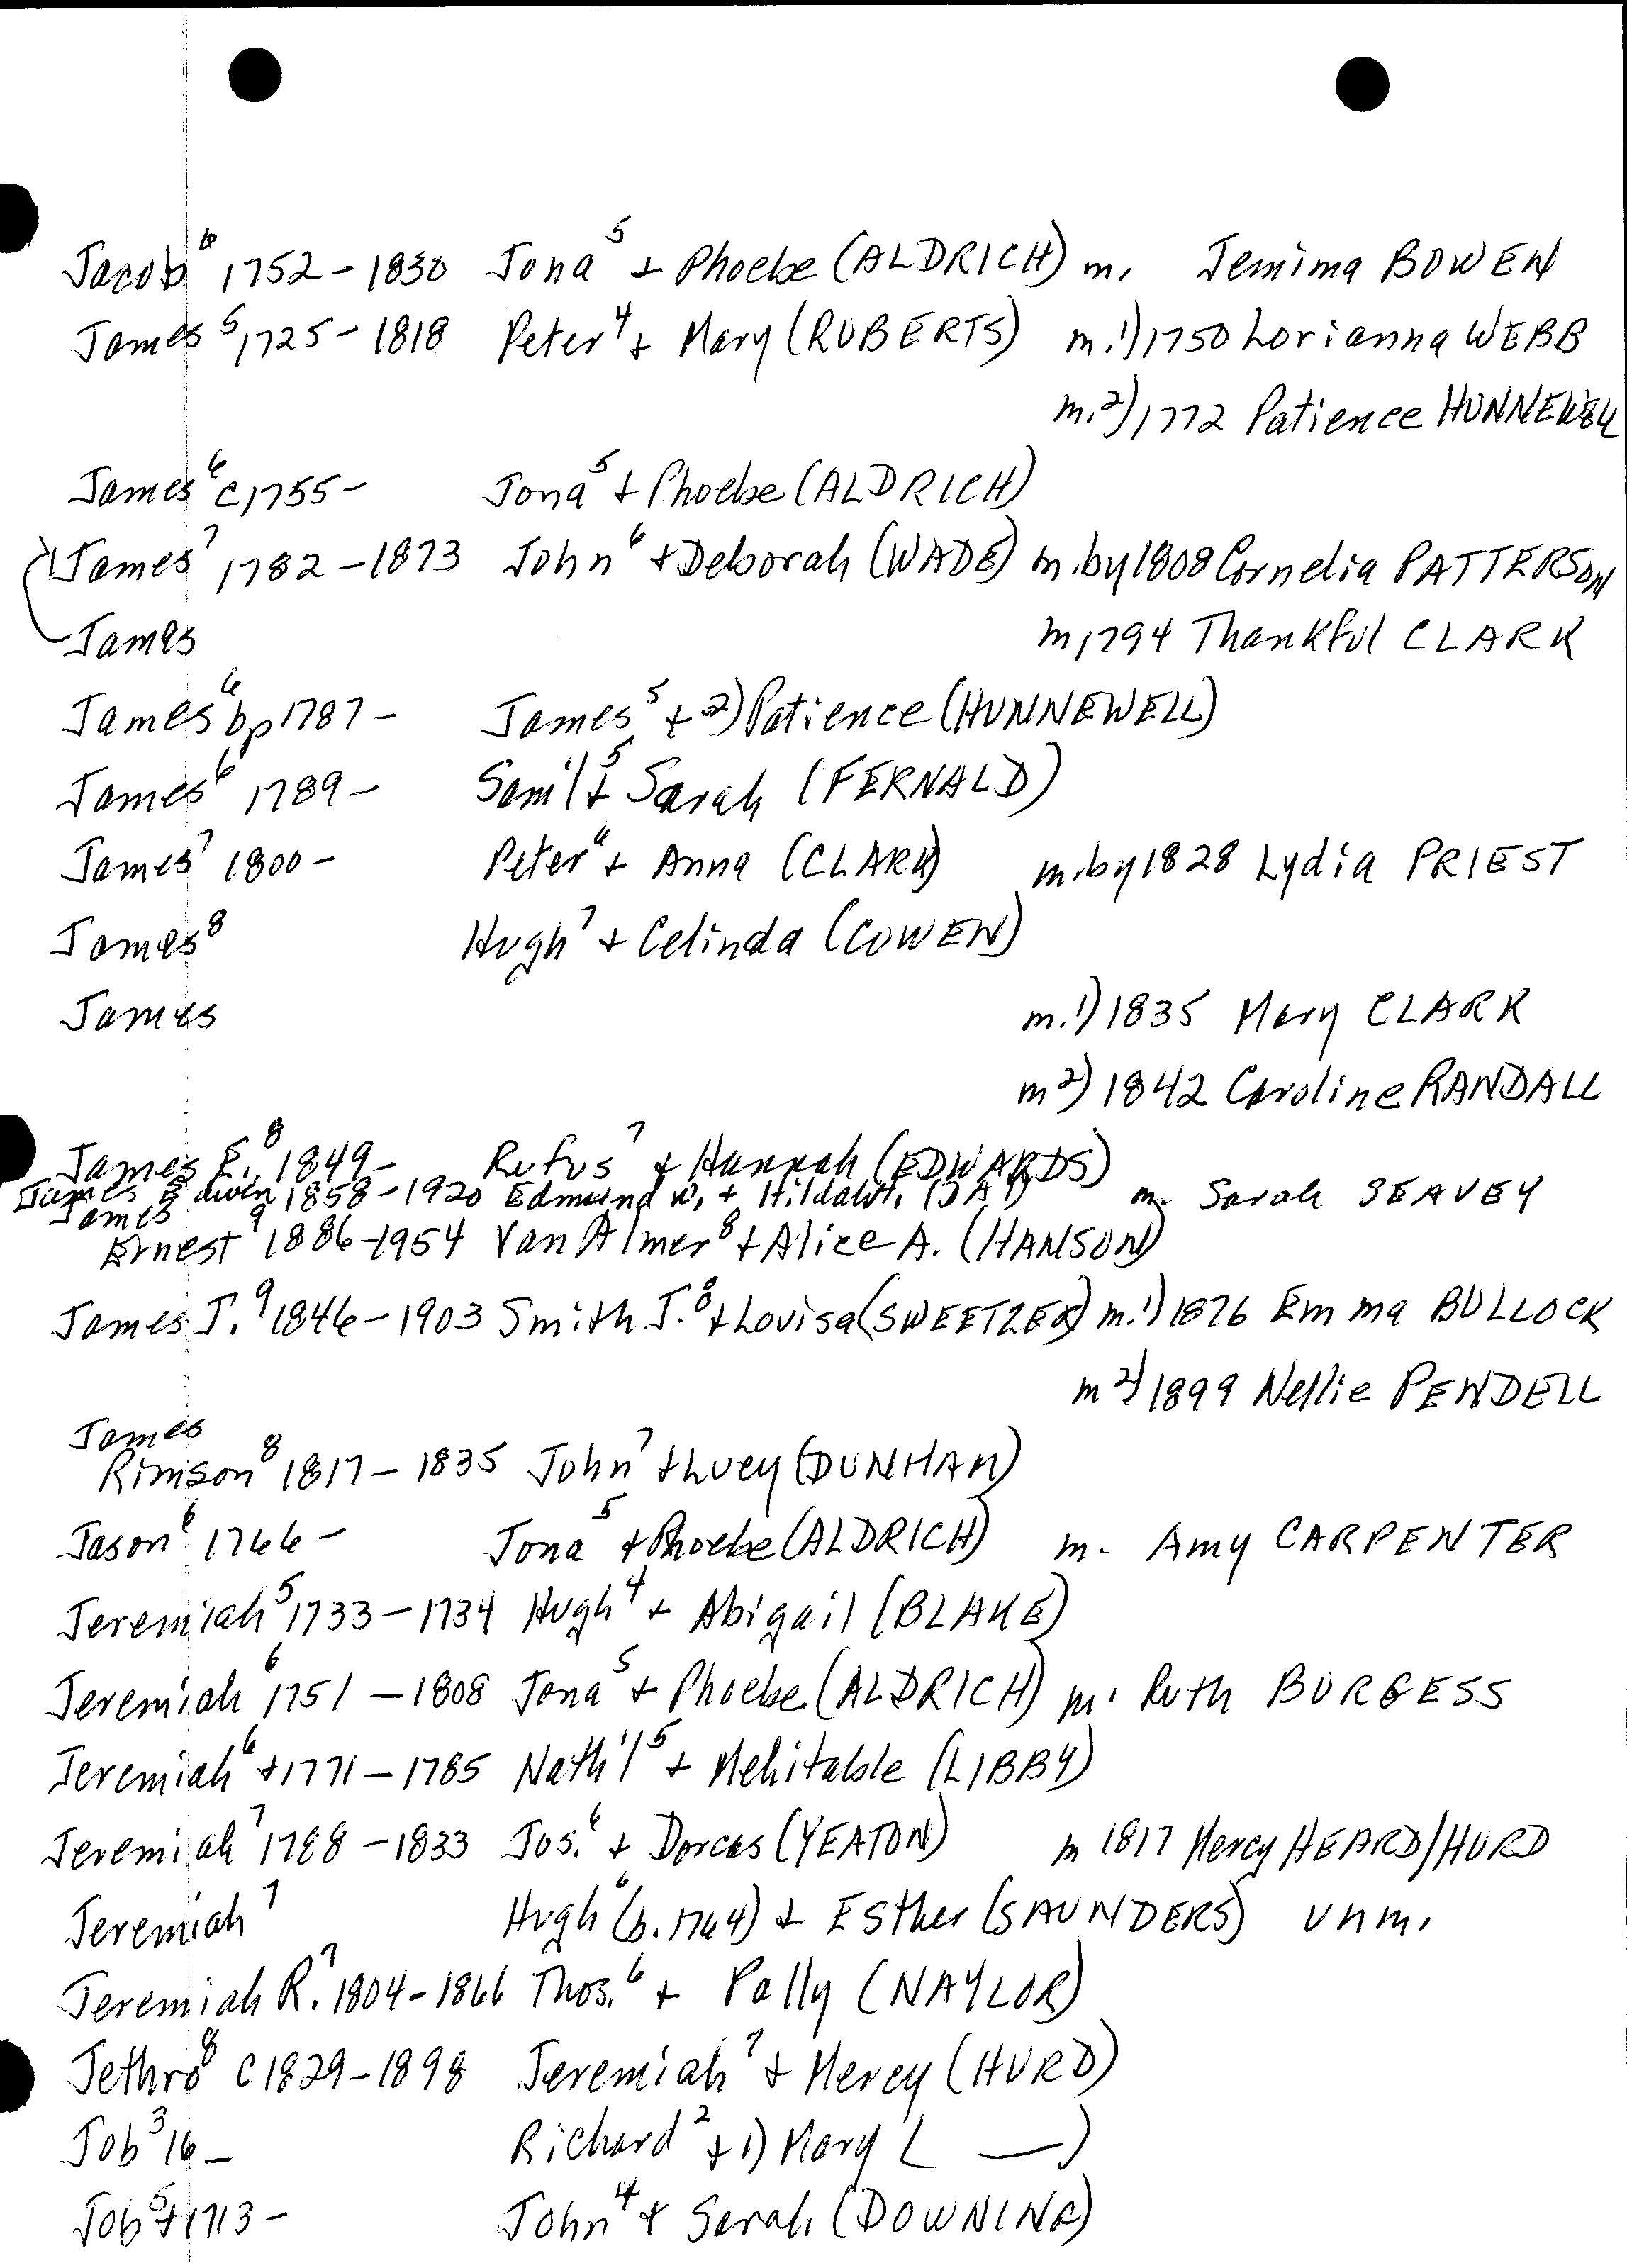 Jacob⁶ 1752-1830 Jona⁵ + Phoebe (ALDRICH) m. Jemima BOWEN
James⁵ 1725-1818 Peter⁴ + Mary (ROBERTS) m.1) 1750 Lorianna WEBB
m.2) 1772 Patience HUNNEWELL
James⁶ c1755- Jona⁵ + Phoebe (ALDRICH)
James⁷ 1782-1873 John⁶ + Deborah (WADE) m.by 1808 Cornelia PATTERSON
James m 1794 Thankful CLARK
James⁶ bp 1787- James⁵ + 2) Patience (HUNNEWELL)
James⁶ 1789- Sam'l⁵ + Sarah (FERNALD)
James⁷ 1800- Peter⁶ + Anna (CLARK) m.by 1828 Lydia PRIEST
James⁸ Hugh⁷ + Celinda (COWEN)
James m.1) 1835 Mary CLARK
m2) 1842 Caroline RANDALL
James E.⁸ 1849- Rufus⁷ + Hannah (EDWARDS)
James Edwin 1858-1920 Edmund W. + m. Sarah SEAVEY
James
Ernest⁹ 1886-1954 Van Almer⁸ + Alice A. (HANSON)
James J.⁹ 1846-1903 Smith J.⁸ + Lovisa (SWEETZER) m.1) 1876 Emma BULLOCK
m 2) 1899 Nellie PENDELL
James
Rimson⁸ 1817-1835 John⁷ + Lucy (DUNHAM)
Jason⁶ 1766- Jona⁵ + Phoebe (ALDRICH) m. Amy CARPENTER
Jeremiah⁵ 1733-1734 Hugh⁴ + Abigail (BLAKE)
Jeremiah⁶ 1751-1808 Jona⁵ + Phoebe (ALDRICH) m. Ruth BURGESS
Jeremiah⁶ +1771-1785 Nath'l⁵ + Mehitable (LIBBY)
Jeremiah⁷ 1788-1833 Jos.⁶ + Dorcas (YEATON) m 1817 Mercy HEARD/HURD
Jeremiah⁷ Hugh⁶ (b. 1764) + Esther (SAUNDERS) unm.
Jeremiah R.⁷ 1804-1866 Thos.⁶ + Polly (NAYLOR)
Jethro⁸ c1829-1898 Jeremiah⁷ + Mercy (HURD)
Job³ 16- Richard² + 1) Mary ( — )
Job⁵ +1713- John⁴ + Sarah (DOWNING)